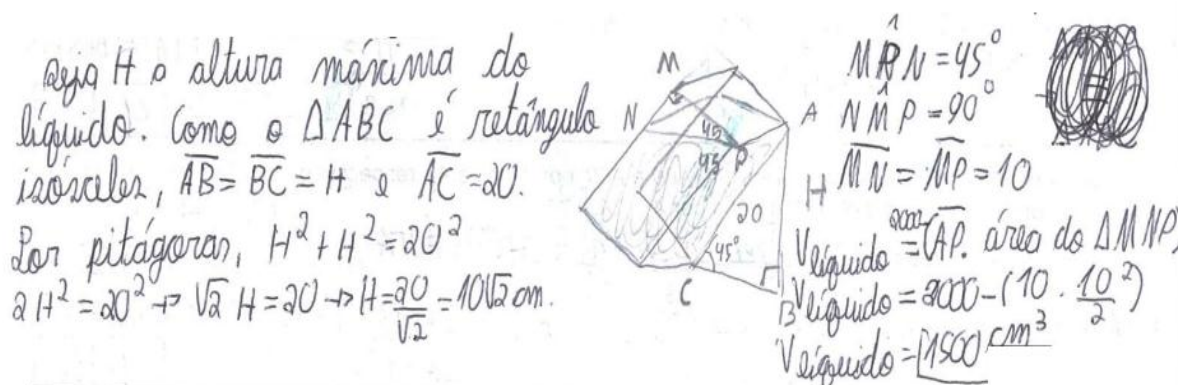 Seja H a altura máxima do
líquido. Como o ΔABC é retângulo
isósceles, AB = BC = H e AC = 20.
Por pitágoras, H² + H² = 20²
2H² = 20² → √2 H = 20 → H = 20/√2 = 10√2 cm.
M
N
A
P
45
45
H
20
45°
C
B
MP̂N = 45°
NM̂P = 90°
MN = MP = 10
Vlíquido = 2000 - (AP. área do ΔMNP)
Vlíquido = 2000 - (10 . 10²/2)
Vlíquido = 1500 cm³